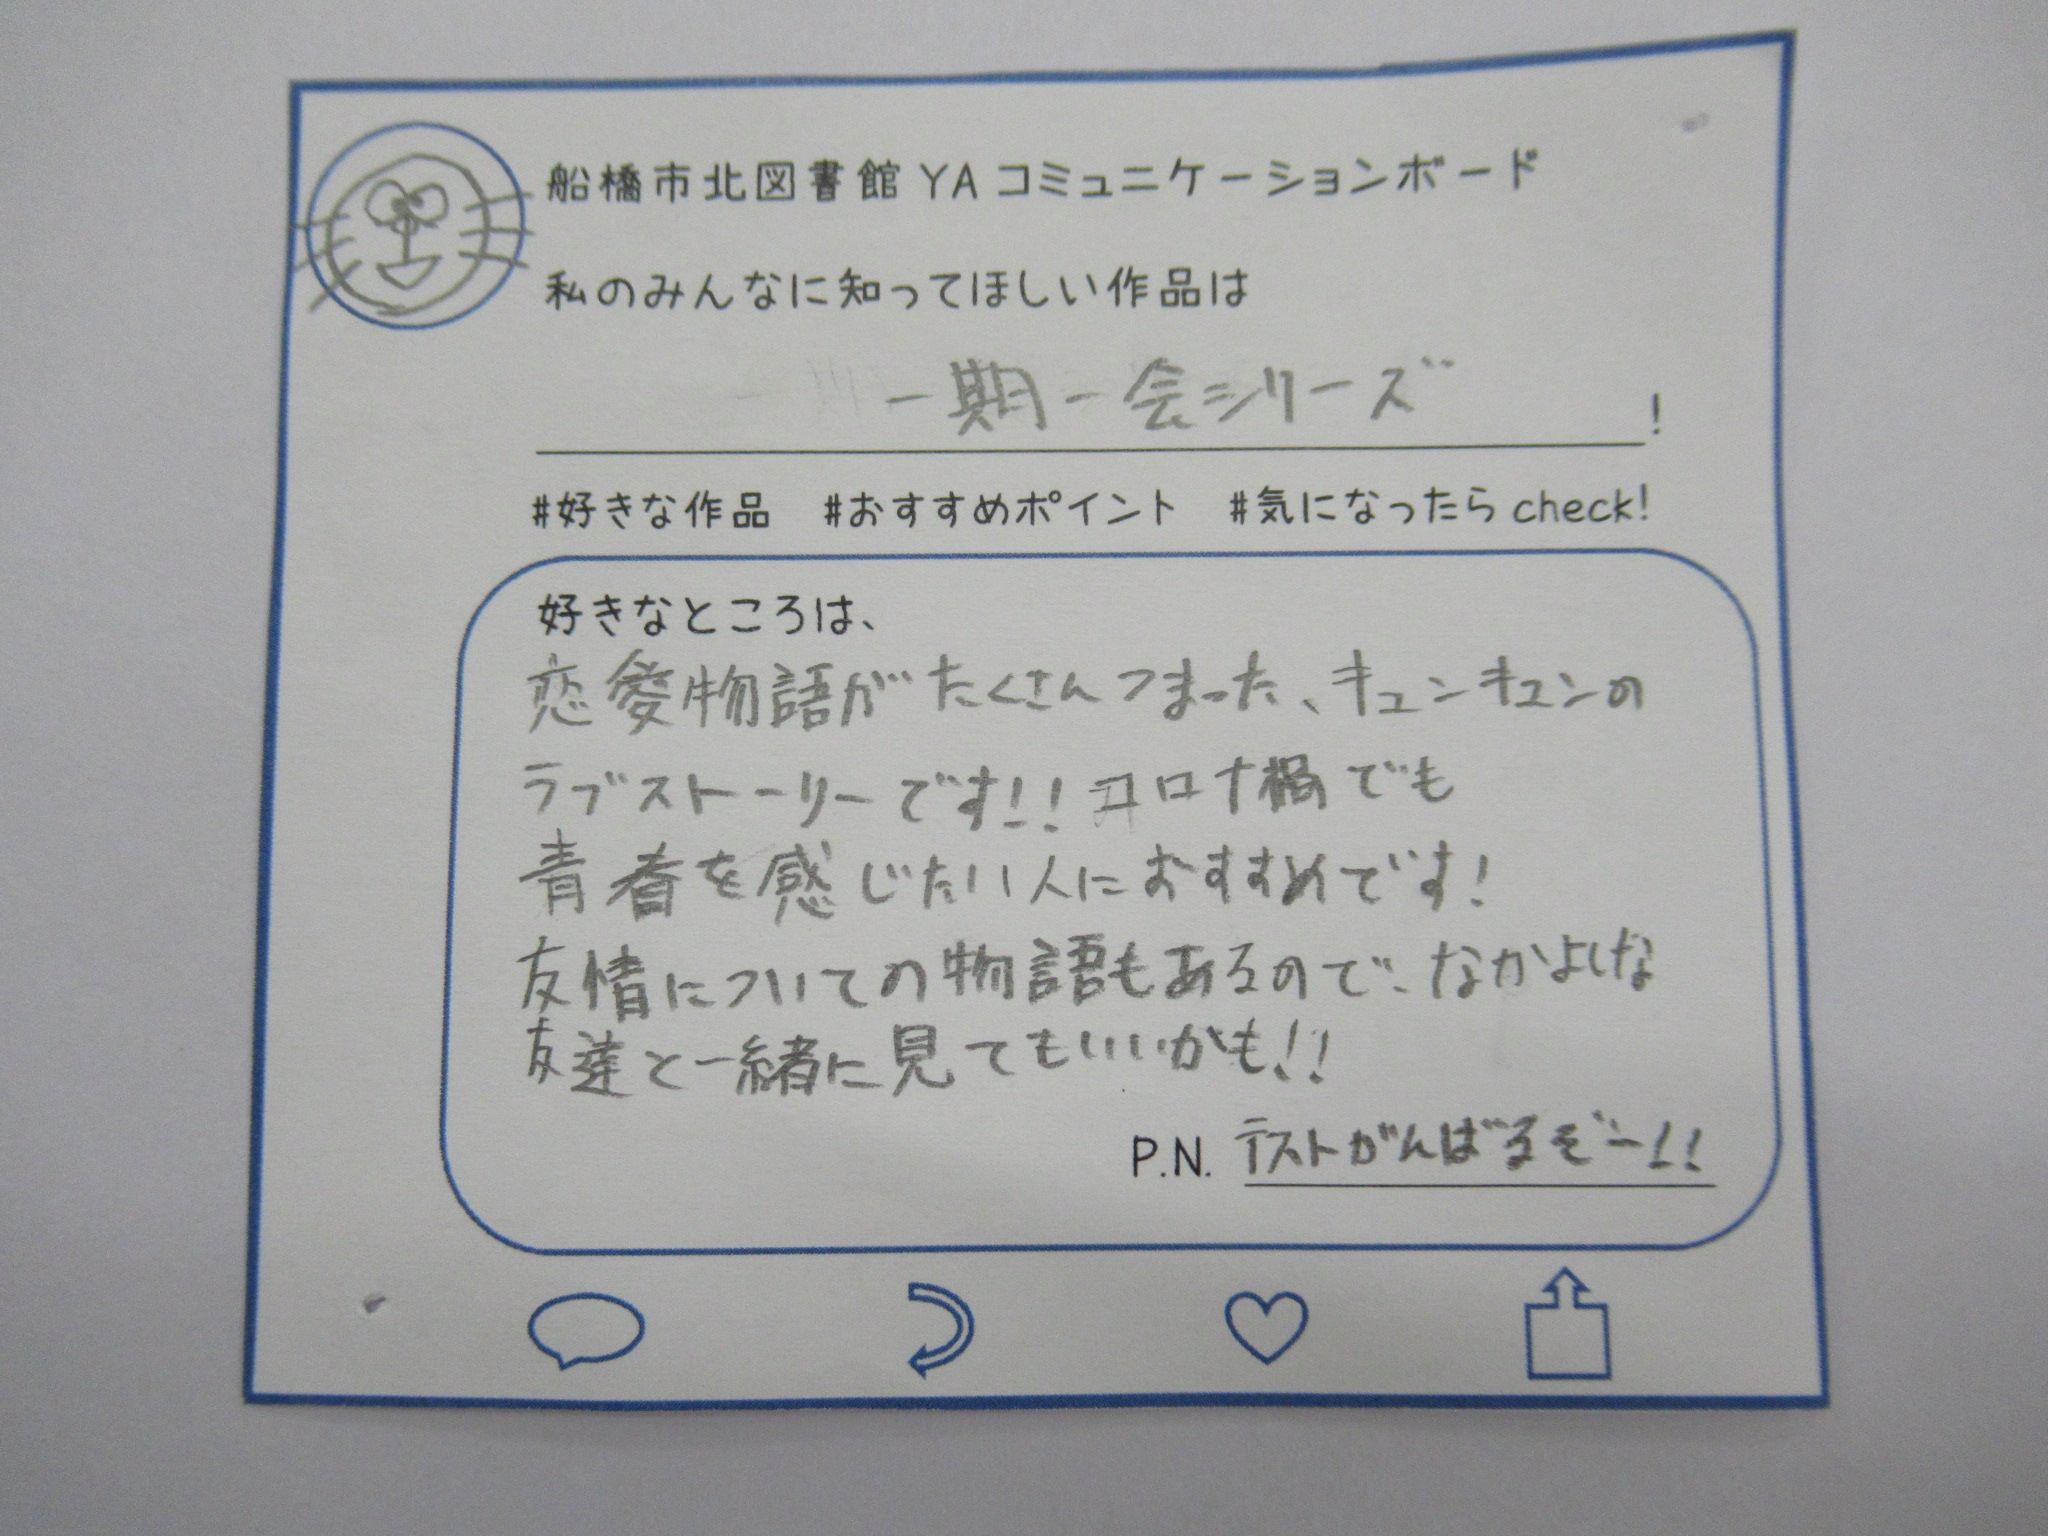 船橋市北図書館 YA コミュニケーションボード
私のみんなに知ってほしい作品は
一期一会シリーズ!
#好きな作品 #おすすめポイント #気になったら check!
好きなところは、
恋愛物語がたくさんつまった、キュンキュンの
ラブストーリーです!! コロナ禍でも
青春を感じたい人におすすめです!
友情についての物語もあるので、なかよしな
友達と一緒に見てもいいかも!!
P.N. テストがんばるぞー!!